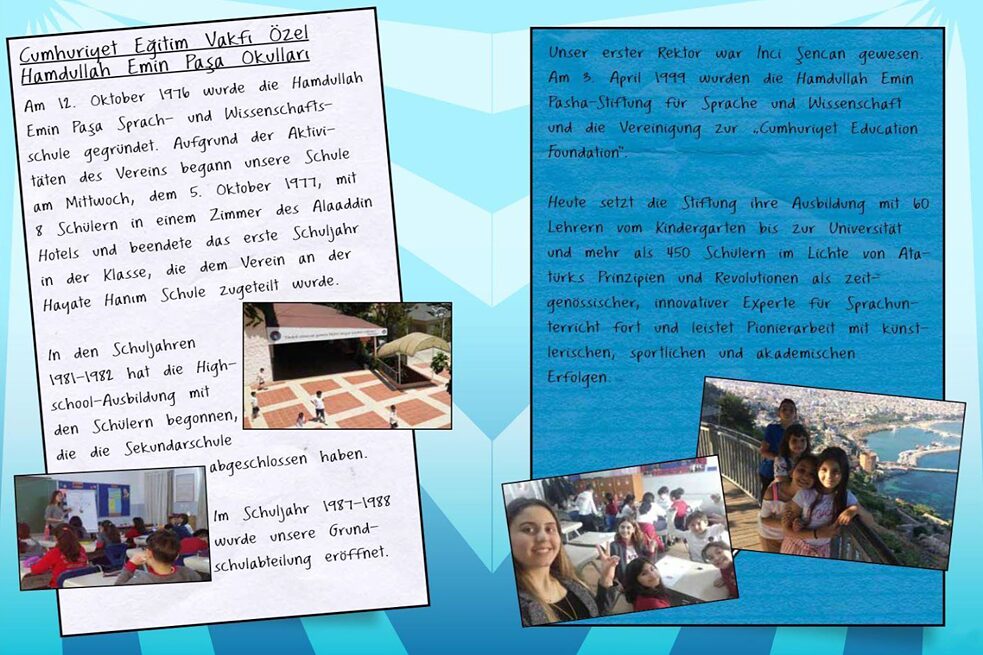 Cumhuriyet Eğitim Vakfı Özel
Hamdullah Emin Paşa Okulları
Am 12. Oktober 1976 wurde die Hamdullah
Emin Paşa Sprach- und Wissenschafts-
schule gegründet. Aufgrund der Aktivi-
täten des Vereins begann unsere Schule
am Mittwoch, dem 5. Oktober 1977, mit
8 Schülern in einem Zimmer des Alaaddin
Hotels und beendete das erste Schuljahr
in der Klasse, die dem Verein an der
Hayate Hanım Schule zugeteilt wurde.
In den Schuljahren
1981-1982 hat die High-
school-Ausbildung mit
den Schülern begonnen,
die die Sekundarschule
abgeschlossen haben.
Im Schuljahr 1987-1988
wurde unsere Grund-
schulabteilung eröffnet.
Unser erster Rektor war Inci Şencan gewesen.
Am 3. April 1999 wurden die Hamdullah Emin
Pasha-Stiftung für Sprache und Wissenschaft
und die Vereinigung zur „Cumhuriyet Education
Foundation“.
Heute setzt die Stiftung ihre Ausbildung mit 60
Lehrern vom Kindergarten bis zur Universität
und mehr als 450 Schülern im Lichte von Ata-
türks Prinzipien und Revolutionen als zeit-
genössischer, innovativer Experte für Sprachun-
terricht fort und leistet Pionierarbeit mit künst-
lerischen, sportlichen und akademischen
Erfolgen.